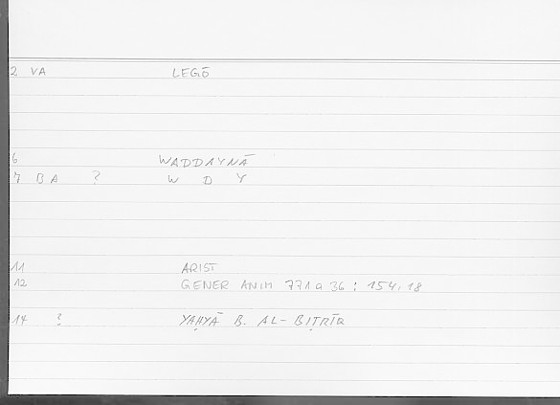 2 VA LEGŌ
6 WADDAYNĀ
7 BA ? W D Y
11 ARIST
12 GENER ANIM 771a36 : 154,18
14 ? YAḤYĀ B. AL-BIṬRĪQ